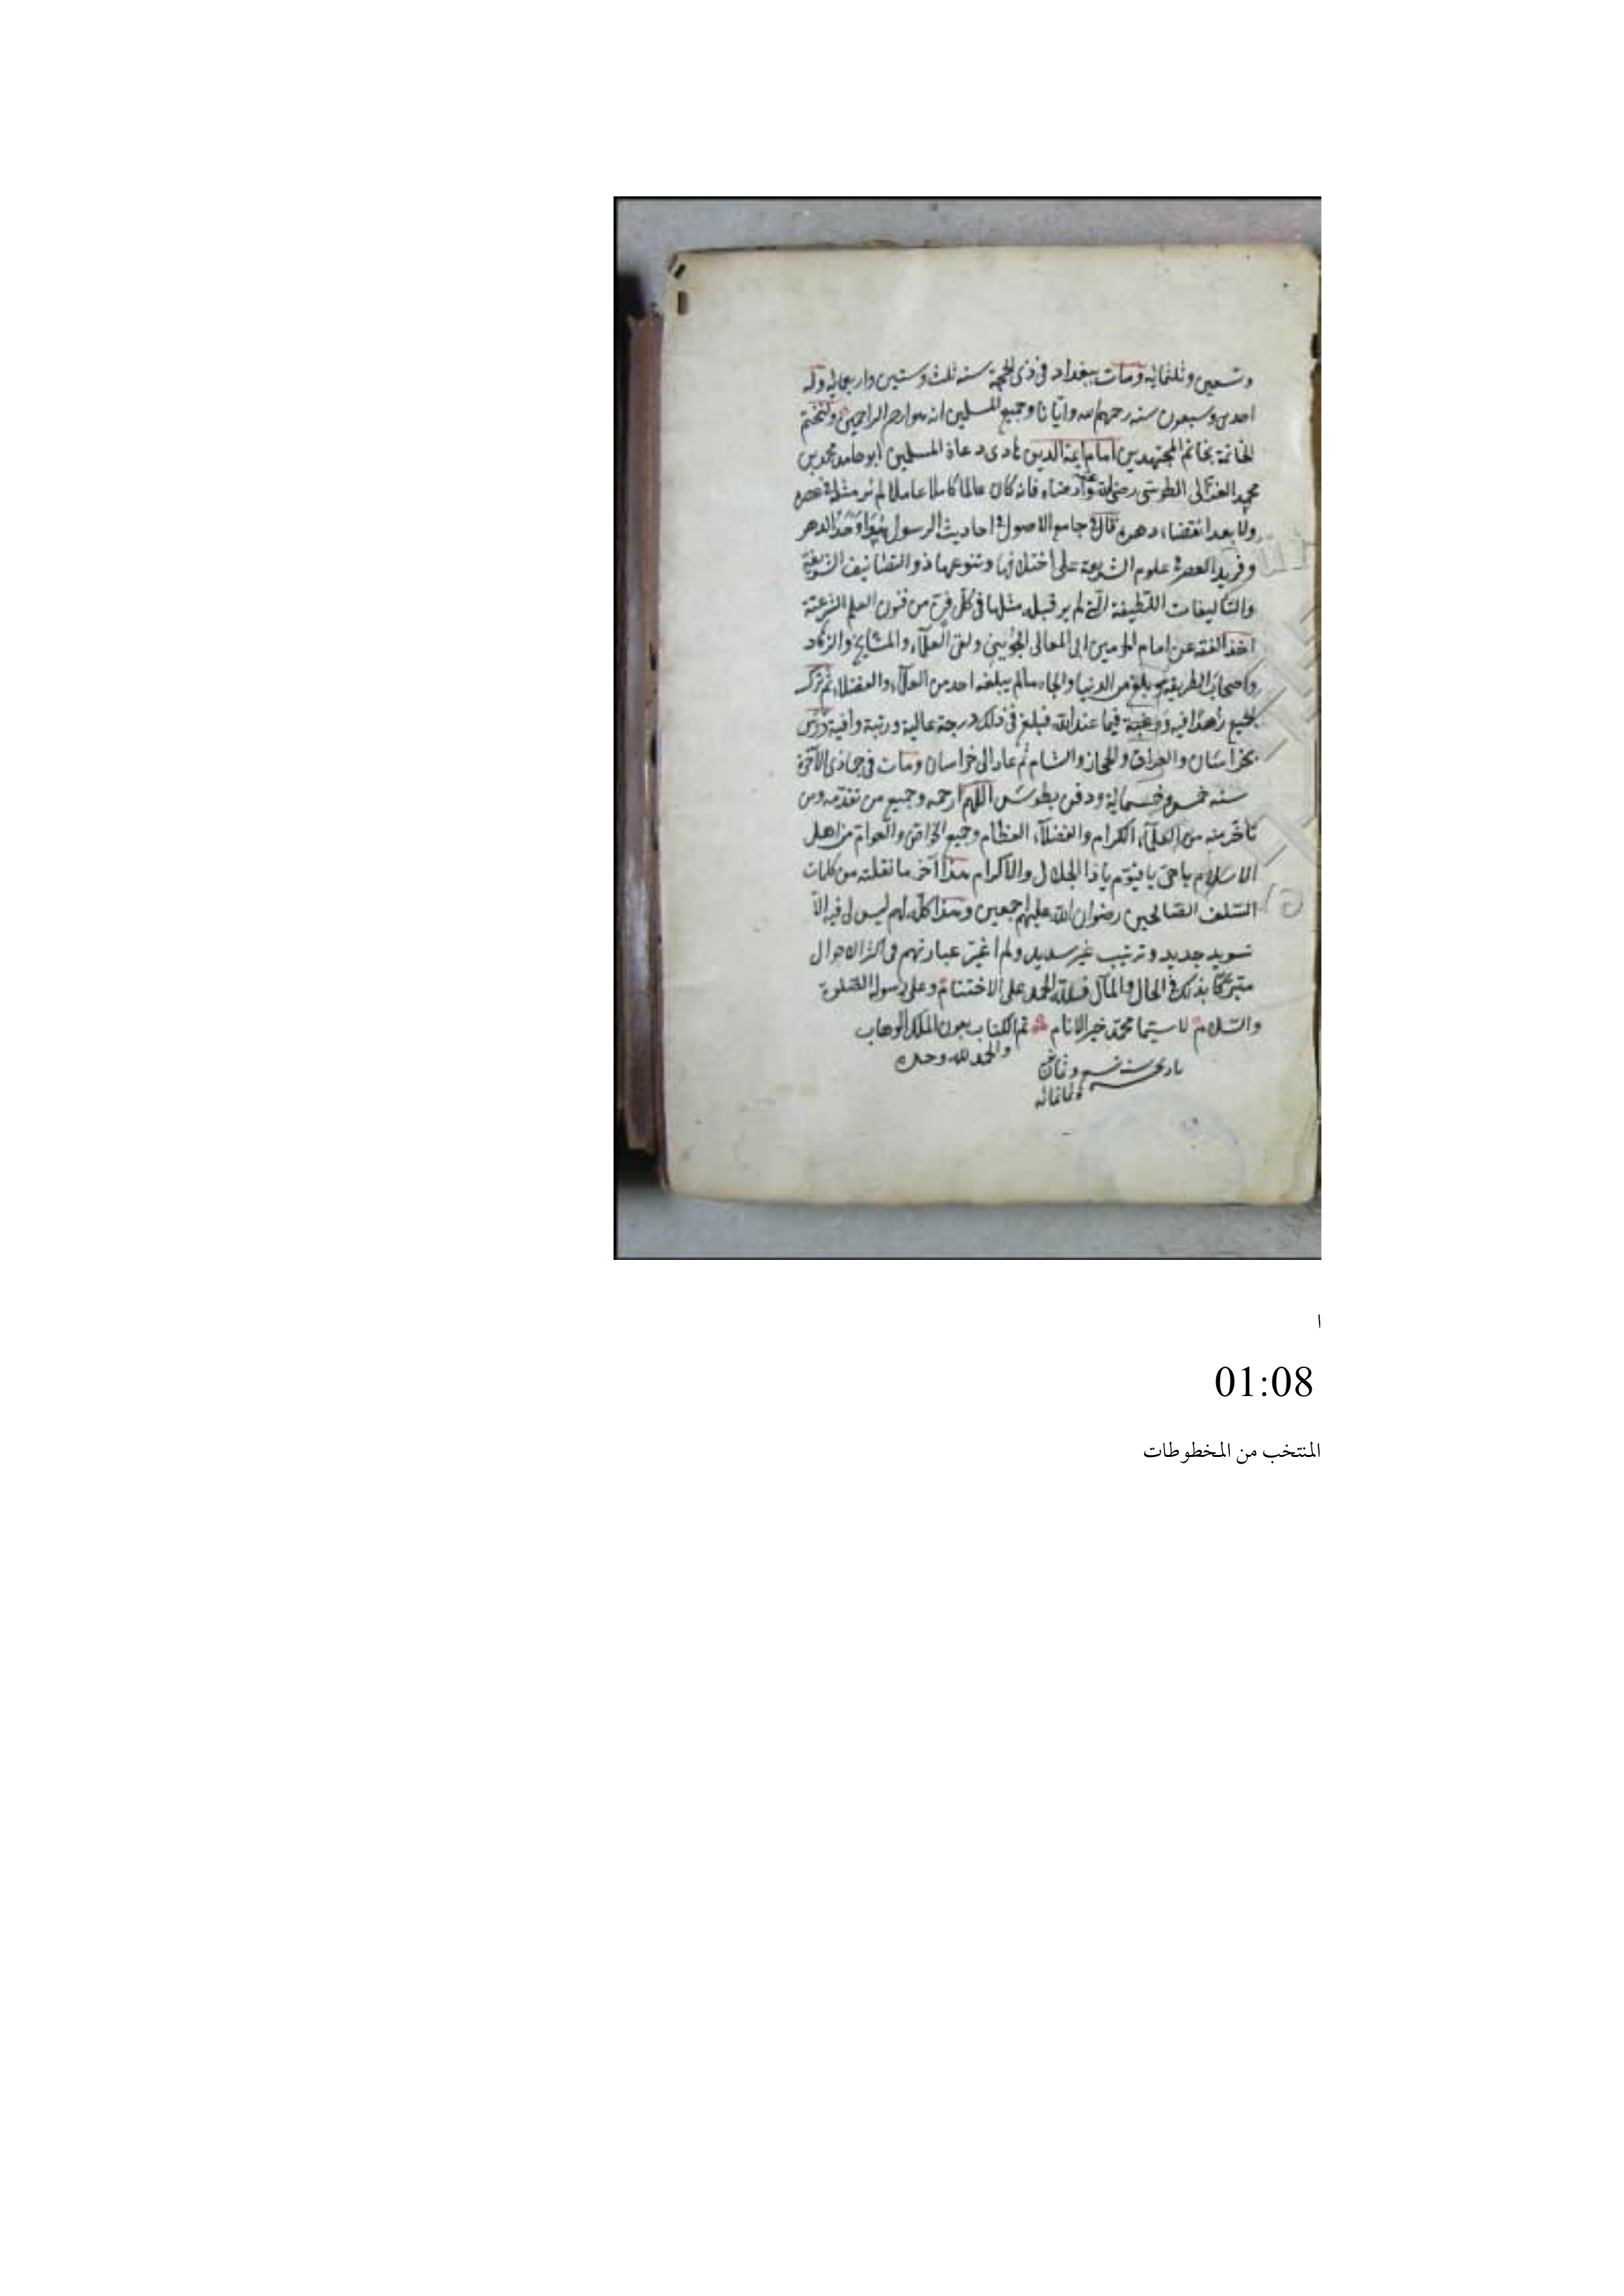 وتسعين وثلثمائة ومات ببغداد فى ذى الحجة سنه ثلث وستين واربعماية وله
احدى وسبعون سنه رحمهم الله وايّانا وجميع المسلمين انه هو ارحم الراحمين ولنختم
الخاتمة بخاتم المجتهدين امام ايمة الدين هادى دعاة المسلمين ابو حامد محمد بن
محمد الغزالى الطوسى رضى الله عنه وارضاه فانه كان عالما كاملا عاملا لم ير مثله فى عصره
ولا بعد انقضاء دهره قال فى جامع الاصول فى احاديث الرسول هو اوحد الدهر
وفريد العصر فى علوم الشريعة على اختلافها وتنوعها ذو التصانيف الشريفة
والتاليفات اللطيفة التى لم ير قبله مثلها فى كل فن من فنون العلم الشرعية
اخذ الفقه عن امام الحرمين ابى المعالى الجوينى ولقى العلماء والمشايخ والزهاد
واصحاب الطريقة وبلغ من الدنيا والجاه مالم يبلغه احد من العلماء والفضلاء ثم ترك
الجميع زهدا فيه ورغبة فيما عند الله فبلغ فى ذلك درجة عالية ورتبة وافية ودرس
بخراسان والعراق والحجاز والشام ثم عاد الى خراسان ومات فى جمادى الآخرة
سنه خمس وخمسماية ودفن بطوس اللهم ارحمه وجميع من تقدمه ومن
تاخر منه من العلماء الكرام والفضلاء العظام وجميع الخواص والعوام من اهل
الاسلام ياحى ياقيّوم ياذا الجلال والاكرام هذا آخر ما نقلته من كلمات
السّلف الصّالحين رضوان الله عليهم اجمعين وهذا كله لهم ليس لى فيه الّا
تسويد جديد وترتيب غير سديد ولم اغير عبارتهم فى اكثر الاحوال
متبركا بذلك فى الحال والمآل فلله الحمد على الاختتام وعلى رسوله الصلوة
والسّلام لا سيّما محمّد خير الانام تم الكتاب بعون الملك الوهاب
والحمد لله وحده
سنه وثمان
وثمانمائه
ا
01:08
المنتخب من المخطوطات